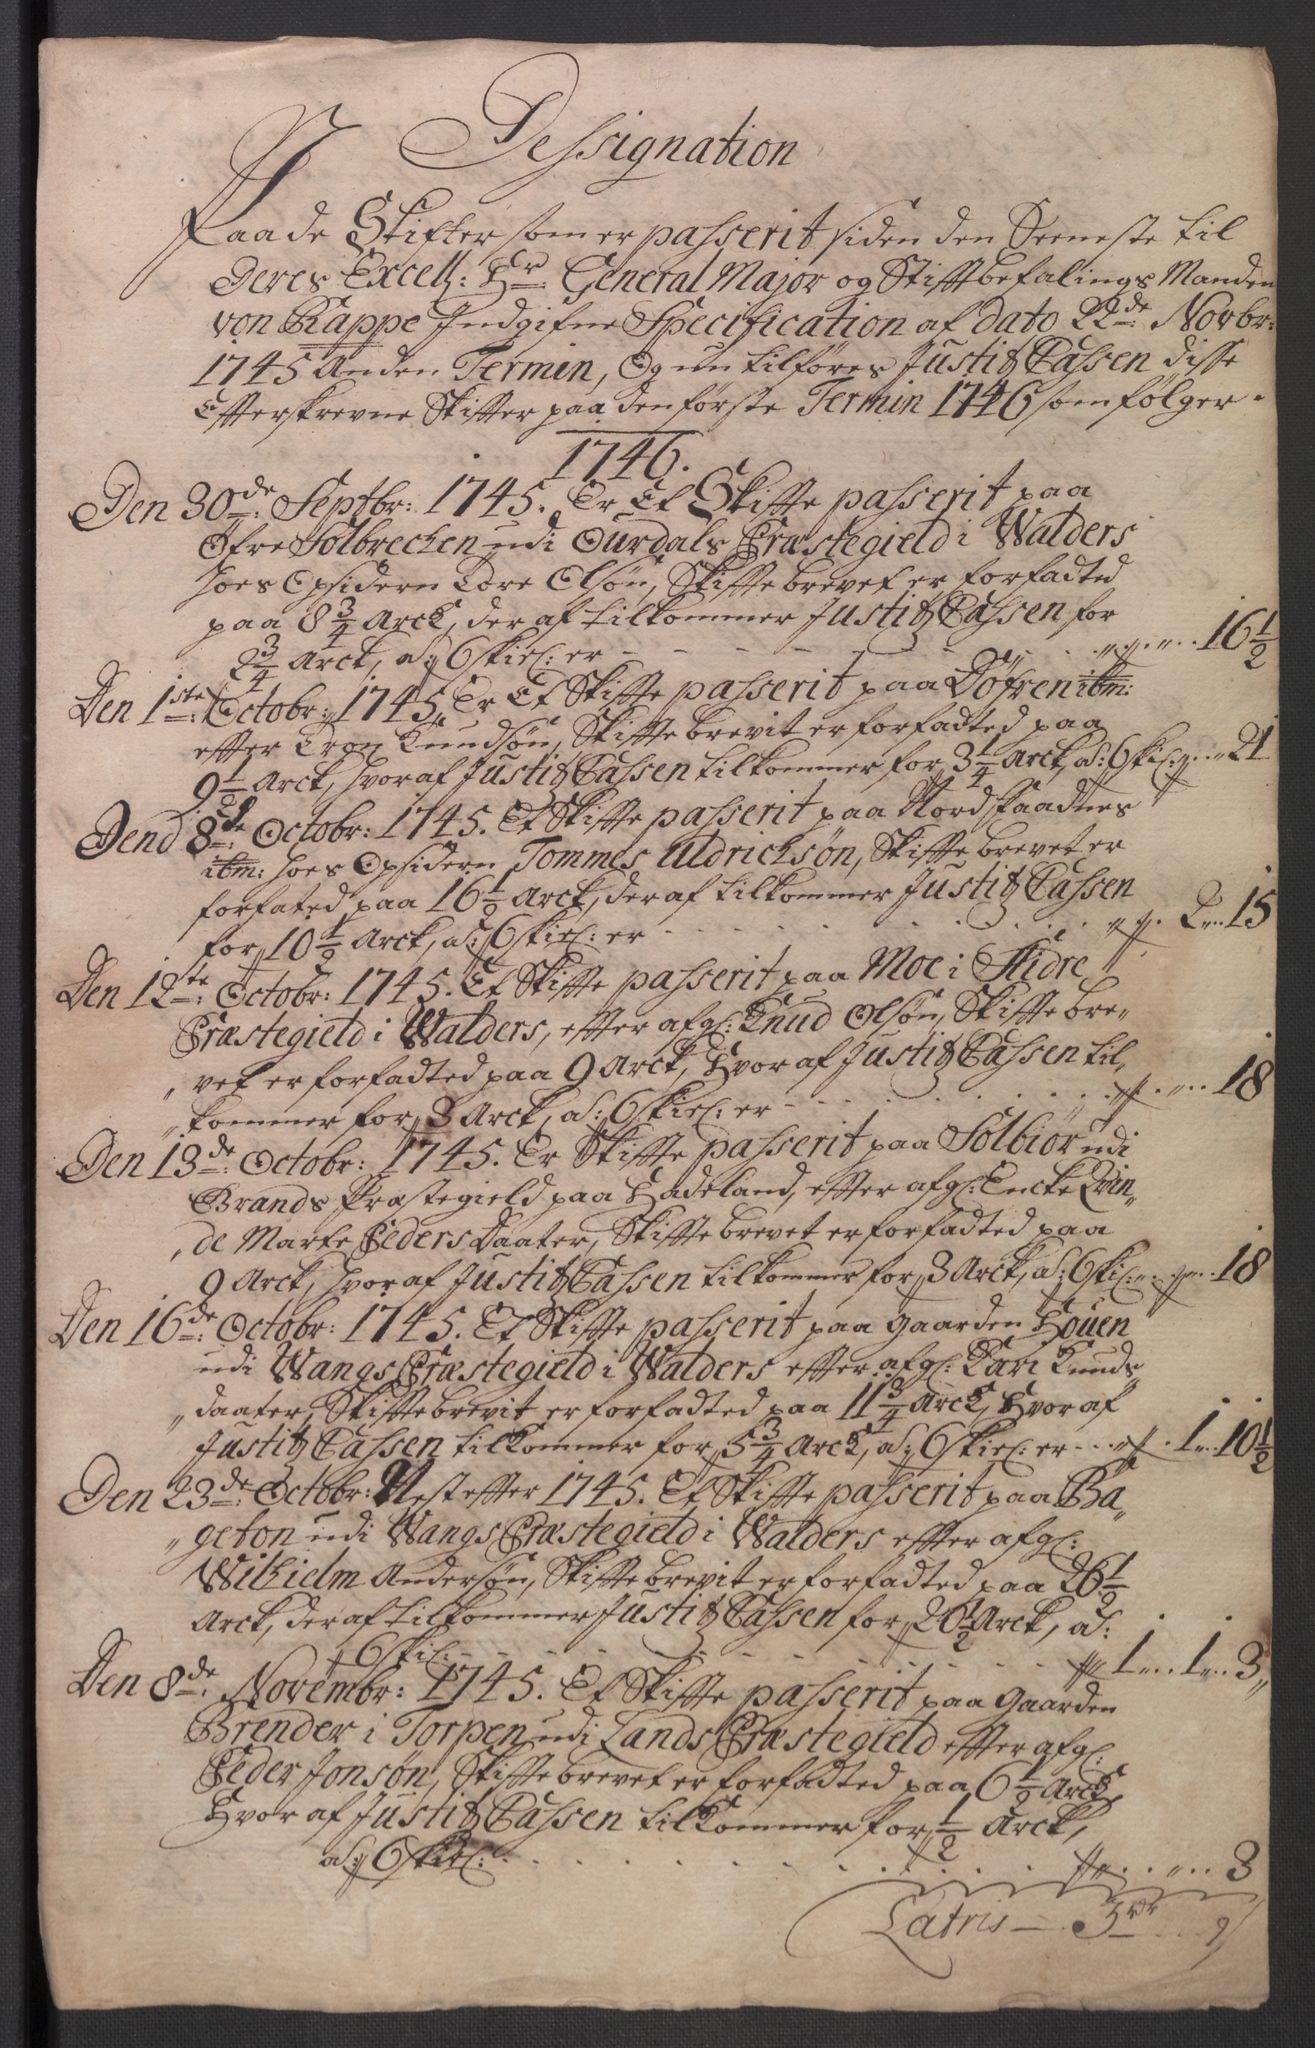 Dessignation
Paa de Skifter som er passerit siden den Seeneste til
Deres Excell: Hr General Major og Stiftbefalings Manden
von Rappe Indgifne Specification af dato 22de Novbr:
1745 Anden Termin, Og nu tilføres Justitz Cassen disse
Efterskrevne Skifter paa den første Termin 1746 som følger.
1746.
Den 30de: Septbr: 1745. Er Et Skifte passerit paa
Øfre Solbrecken udi Ourdals Præstegield i Walders
hoes Opsidern Tore Olsøn, Skiftebrevet er forfadted
paa 8 3/4 Arck, der af tilkommer Justitz Cassen for
2 3/4 Arck, a 6 skil: er - - - 16 1/2
Den 1ste: Octobr: 1745. Er Et Skifte passerit paa Döfren ibm:
efter Tron Knudsøn, Skiftebrevit er forfadted paa
9 1/2 Arck, hvoraf Justitz Cassen tilkommer for 3 1/4 Arck, a: 6 skil: 21
Dend 8de: Octobr: 1745. Et Skifte passerit paa Nord Faadnes
ibm: hoes Opsidern Tommes Uldrichsøn, Skiftebrevet er
forfated paa 16 1/2 Arck, der af tilkommer Justitz Cassen
for 10 1/2 Arck, a: 6 skil: er . . . 2 .. 15
Den 12te: Octobr: 1745. Et Skifte passerit paa Moe i Slidre
Præstegield i Walders, efter afgl: Knud Olsøn, Skiftebre-
vet er forfadted paa 9 Arck, Hvor af Justitz Cassen til,
kommer for 3 Arck, a: 6 skil: er - . . . 18
Den 13de: Octobr: 1745. Er Skifte passerit paa Solbiör udi
Brands Præstegield paa Hadeland, efter afgl: Encke Qvin,
de Marte Peders Daater, Skiftebrevet er forfadted paa
9 Arck, hvoraf Justitz Cassen tilkommer for 3 Arck, a: 6 skil: . . 18
Den 16de: Octobr: 1745. Et Skifte passerit paa gaarden Houen
udi Wangs Præstegield i Walders efter afgl: Kari Knuds,
daater, Skiftebrevit er forfadted paa 11 3/4 Arck, Hvor af
Justitz Cassen tilkommer for 5 3/4 Arck, a: 6 skil: er . . . 1 .. 10 1/2
Den 23de: Octobr: Nest efter 1745. Et Skifte passerit paa Ba,
gebon udi Wangs Præstegield i Walders efter afgl:
Wilhielm Andersøn, Skiftebrevit er forfadted paa 26 1/2
Arck, der af tilkommer Justitz Cassen for 20 1/2 Arck, a:
6 skil: - . . . 1 .. 1 .. 3
Den 8de: Novembr: 1745. Et Skifte passerit paa Gaarden
Brender i Torpen udi Lands Præstegield efter afgl:
Peder Jonsøn, Skiftebrevet er forfadted paa 6 1/2 Arck,
Hvor af Justitz Cassen tilkommer for 1/2 Arck,
a: 6 skil: . . . 3
Latris - 3 rdr .. 9